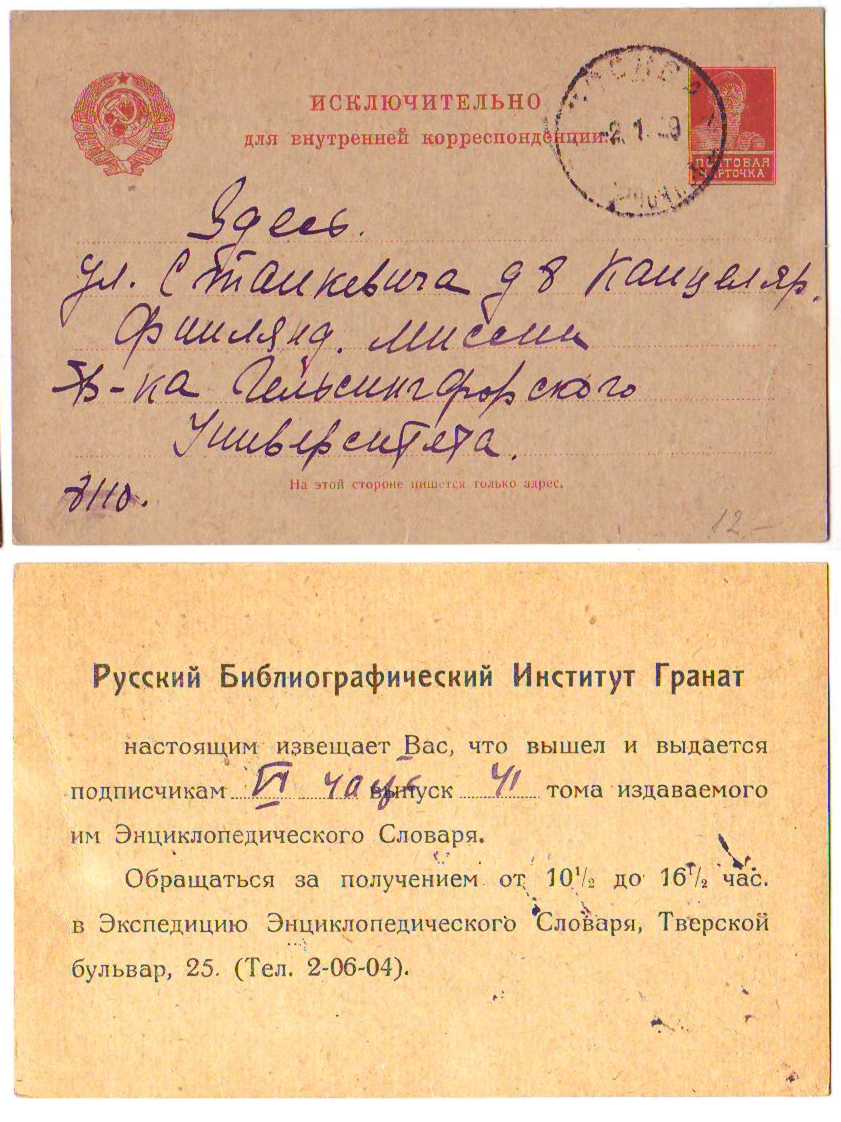 ИСКЛЮЧИТЕЛЬНО
для внутренней корреспонденции.
МОСКВА
-2.1. 9
ПОЧТОВАЯ
КАРТОЧКА
Здесь.
ул. Станкевича д 8 Канцеляр.
Финлянд. миссии
Б-ка Гельсингфорского
Университета.
На этой стороне пишется только адрес.
12.-
Русский Библиографический Институт Гранат
настоящим извещает Вас, что вышел и выдается
подписчикам VI часть выпуск 41 тома издаваемого
им Энциклопедического Словаря.
Обращаться за получением от 10½ до 16½ час.
в Экспедицию Энциклопедического Словаря, Тверской
бульвар, 25. (Тел. 2-06-04).